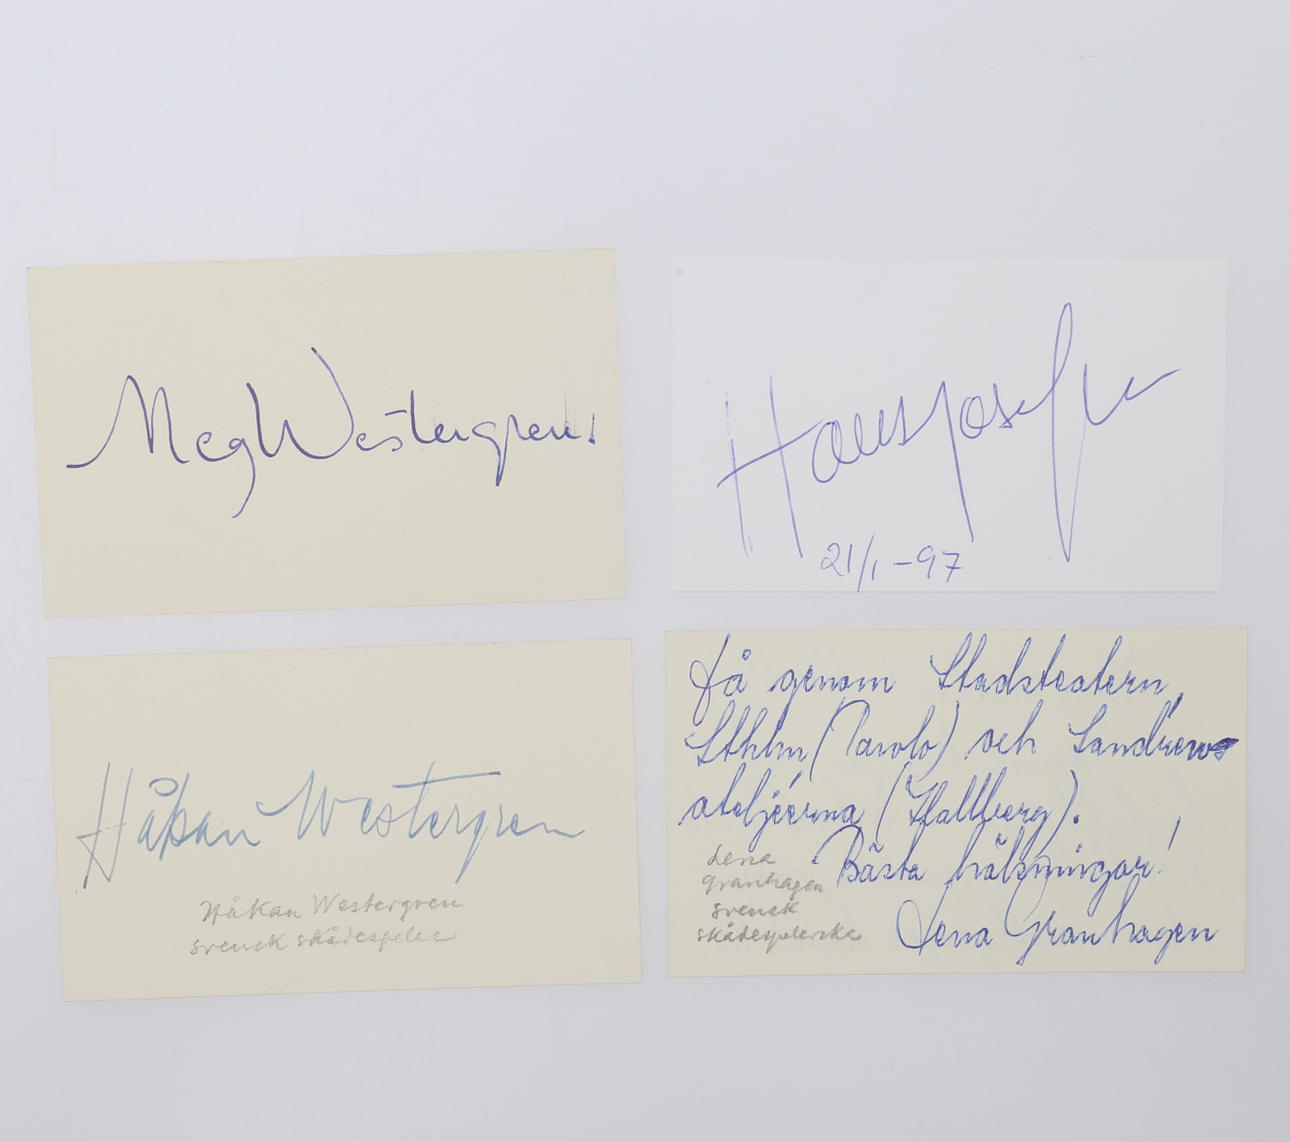 Meg Westergren.
Hans Josefsson
21/1 - 97
Håkan Westergren
Håkan Westergren
svensk skådespelare
få genom Stadsteatern,
Sthlm (Parolo) och Sandrews
ateljéerna (Hallberg).
Bästa hälsningar!
Lena Granhagen
Lena
Granhagen
svensk
skådespelerska